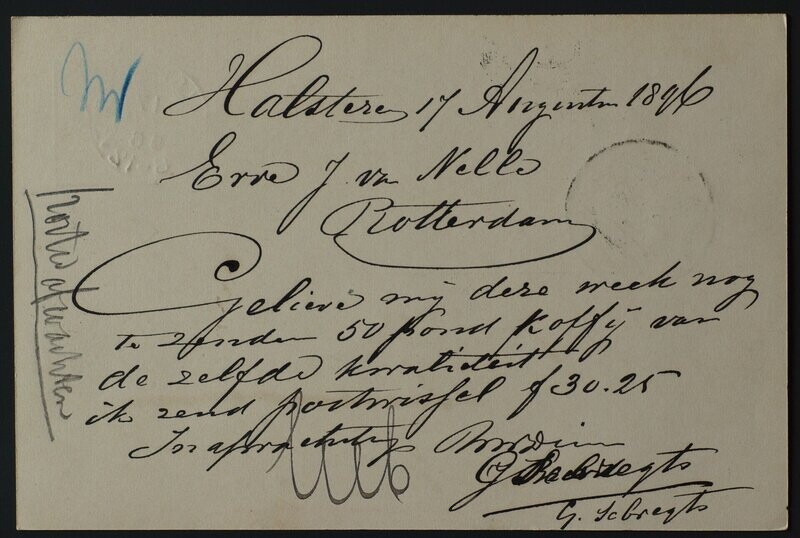 Halsteren 17 Augustus 1896
Erve J. van Nelle
Rotterdam
Gelieve mij deze week nog
te zenden 50 pond Koffij van
de zelfde kwaliteit
ik zend postwissel f 30.25
In afwachting
G. Sebregts
postw. afwachten